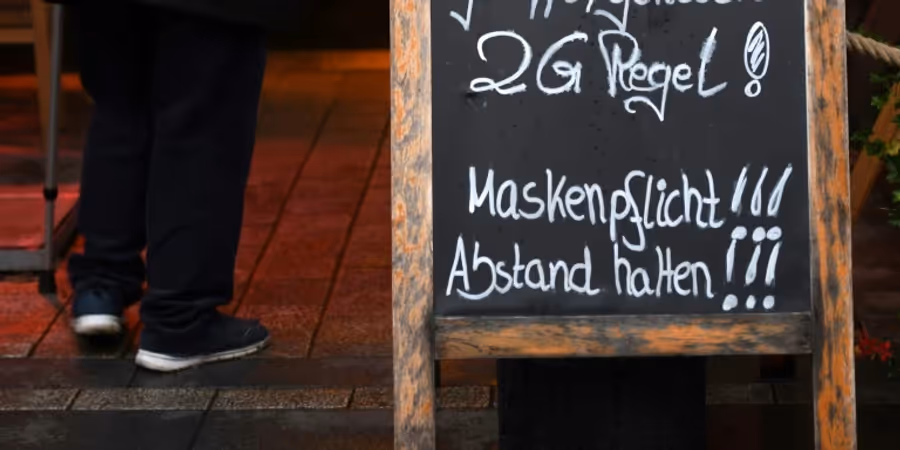 2G Regel!
Maskenpflicht!!!
Abstand halten!!!